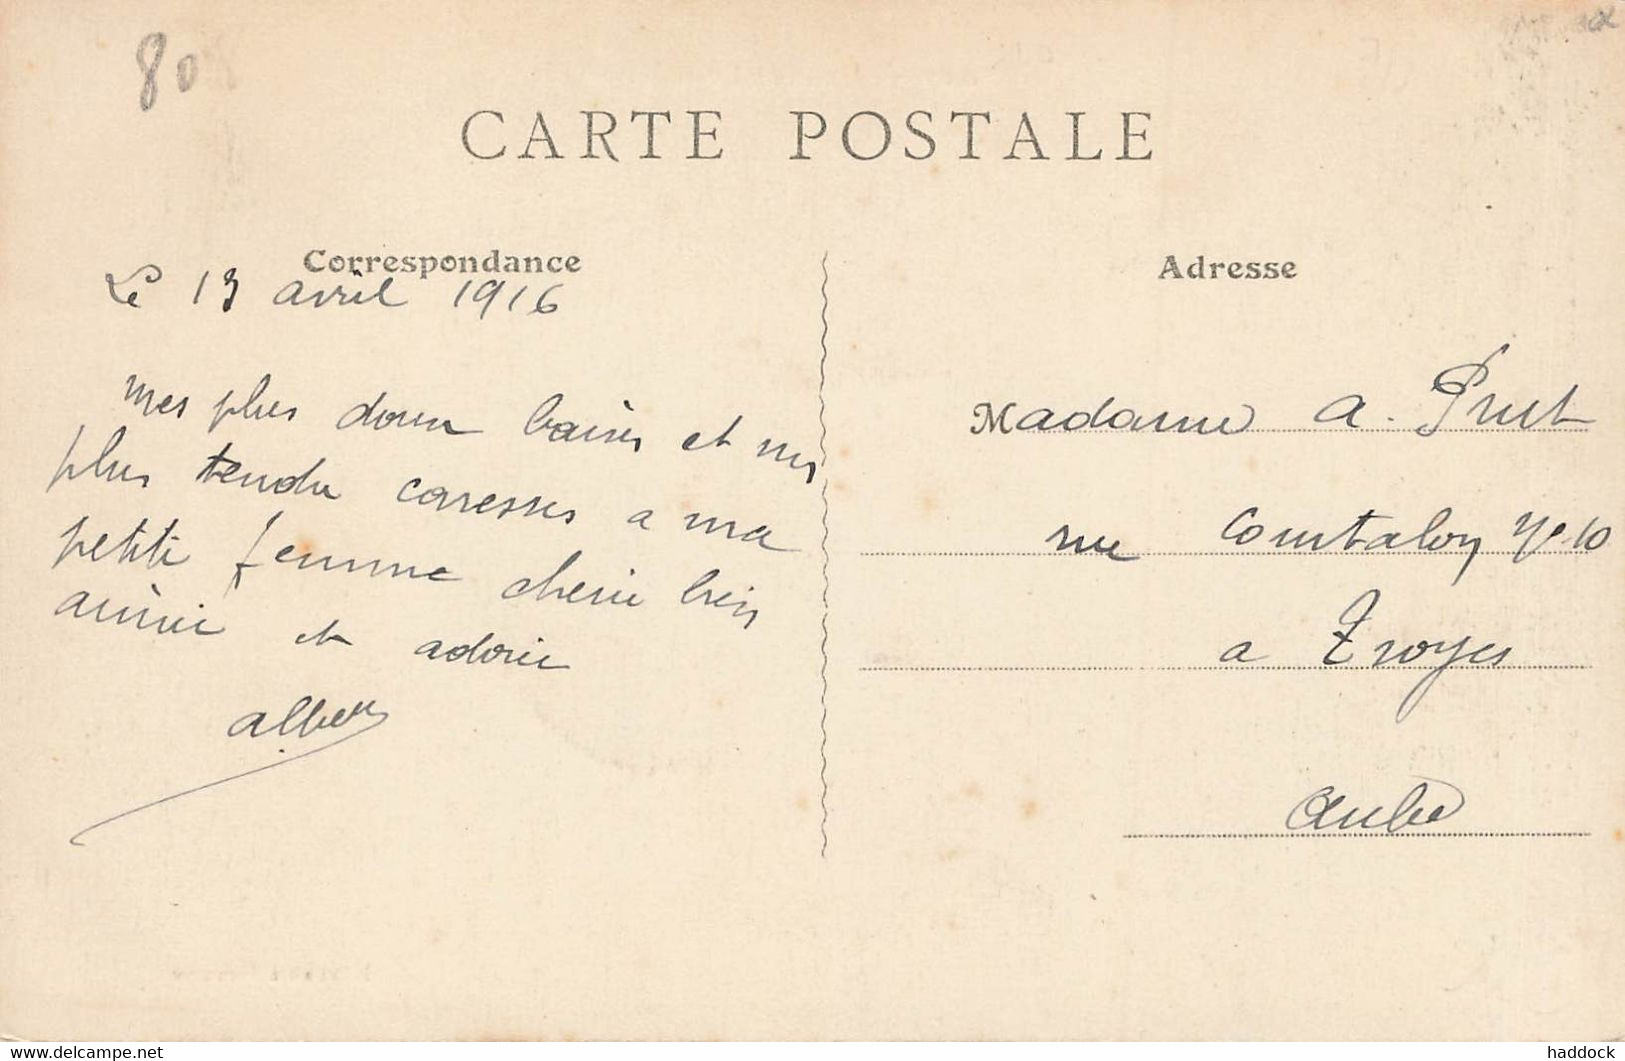 80
CARTE POSTALE
Correspondance
Le 13 avril 1916
Mes plus doux baisers et mes
plus tendre caresses a ma
petite femme cherie bien
aimée et adorée
Albert
Adresse
Madame A. Prut
rue Courtalon No 10
a Troyes
Aube
www.delcampe.net
haddock